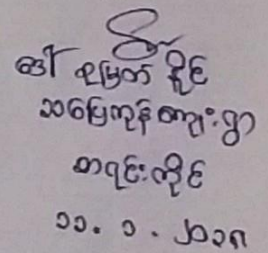 ဒေါ် စုမြတ် နိုင်
သပြေကုန်း ကျေးရွာ
စာရင်းကိုင်
၁၁. ၁. ၂၀၁၈